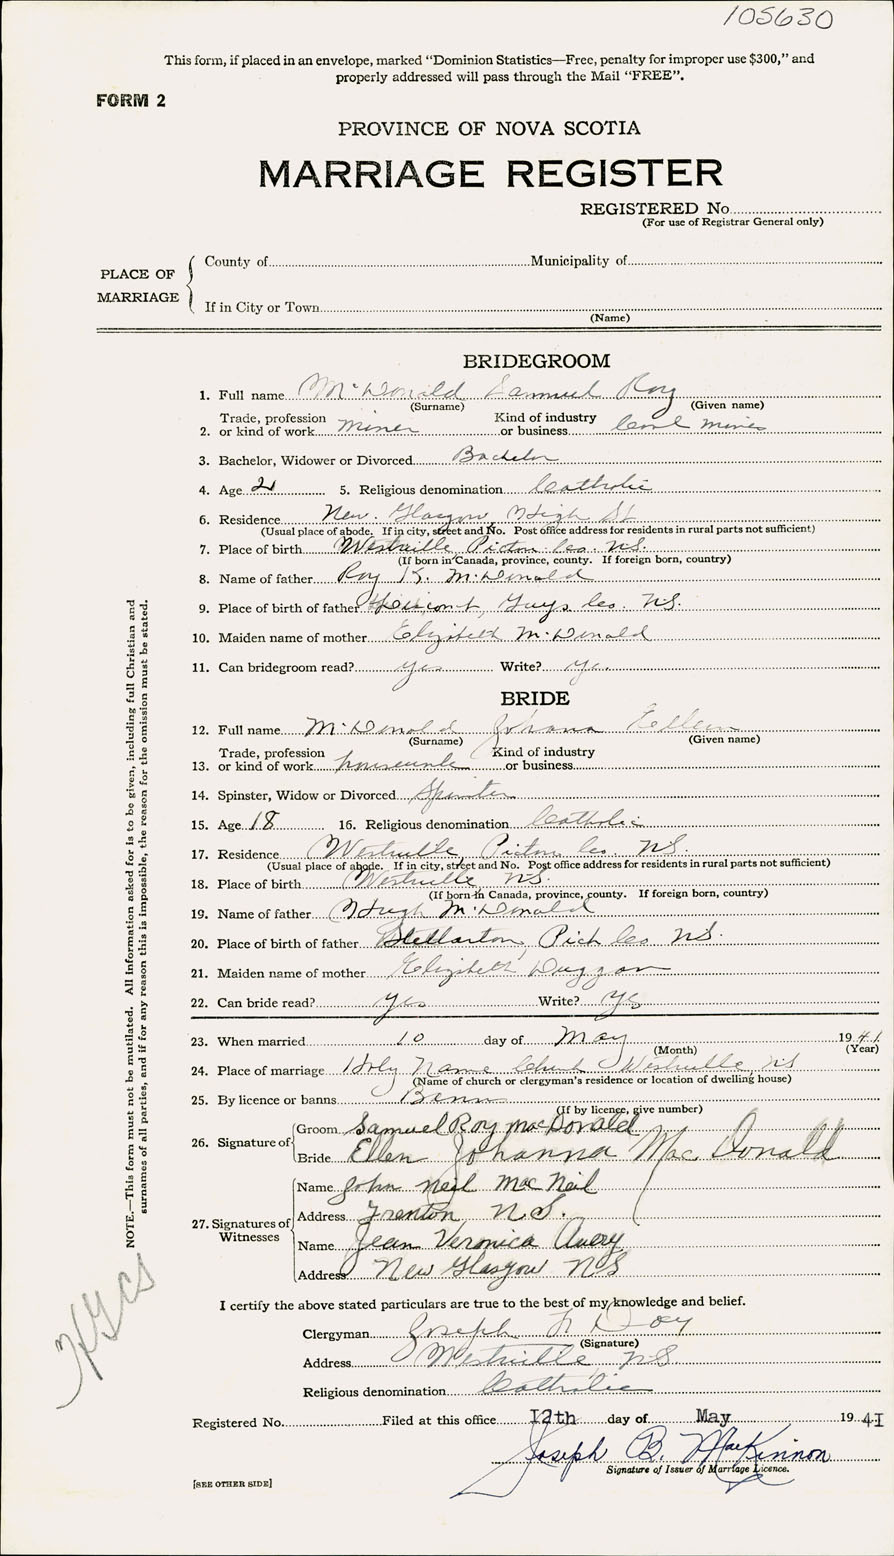 105630
This form, if placed in an envelope, marked "Dominion Statistics—Free, penalty for improper use $300," and
properly addressed will pass through the Mail "FREE".
FORM 2
PROVINCE OF NOVA SCOTIA
MARRIAGE REGISTER
REGISTERED No.
(For use of Registrar General only)
PLACE OF MARRIAGE
County of Municipality of
If in City or Town
(Name)
BRIDEGROOM
1. Full name McDonald Samuel Roy
(Surname) (Given name)
2. Trade, profession or kind of work miner Kind of industry or business Coal mines
3. Bachelor, Widower or Divorced Bachelor
4. Age 5. Religious denomination Catholic
6. Residence New Glasgow High St
(Usual place of abode. If in city, street and No. Post office address for residents in rural parts not sufficient)
7. Place of birth Westville Pictou Co. N.S.
(If born in Canada, province, county. If foreign born, country)
8. Name of father Roy K. McDonald
9. Place of birth of father Guys. Co. N.S.
10. Maiden name of mother Elizabeth McDonald
11. Can bridegroom read? yes Write? yes
BRIDE
12. Full name McDonald Johana Ellen
(Surname) (Given name)
13. Trade, profession or kind of work housework Kind of industry or business
14. Spinster, Widow or Divorced Spinster
15. Age 18 16. Religious denomination Catholic
17. Residence Westville, Pictou Co. N.S.
(Usual place of abode. If in city, street and No. Post office address for residents in rural parts not sufficient)
18. Place of birth Westville N.S.
(If born in Canada, province, county. If foreign born, country)
19. Name of father Hugh McDonald
20. Place of birth of father Stellarton, Pict Co. N.S.
21. Maiden name of mother Elizabeth Duggan
22. Can bride read? yes Write? yes
23. When married 10 day of May 1941
(Month) (Year)
24. Place of marriage Holy Name Church Westville, NS
(Name of church or clergyman's residence or location of dwelling house)
25. By licence or banns Banns
(If by licence, give number)
26. Signature of Groom Samuel Roy MacDonald
Bride Ellen Johanna MacDonald
27. Signatures of Witnesses Name John Neil MacNeil
Address Trenton N.S.
Name Jean Veronica Avery
Address New Glasgow NS
I certify the above stated particulars are true to the best of my knowledge and belief.
Clergyman Joseph
(Signature)
Address Westville N.S.
Religious denomination Catholic
Registered No. Filed at this office 12th day of May 1941
Joseph B. MacKinnon
Signature of Issuer of Marriage Licence.
[SEE OTHER SIDE]
NOTE.—This form must not be mutilated. All information asked for is to be given, including full Christian and
surnames of all parties, and if for any reason this is impossible, the reason for the omission must be stated.